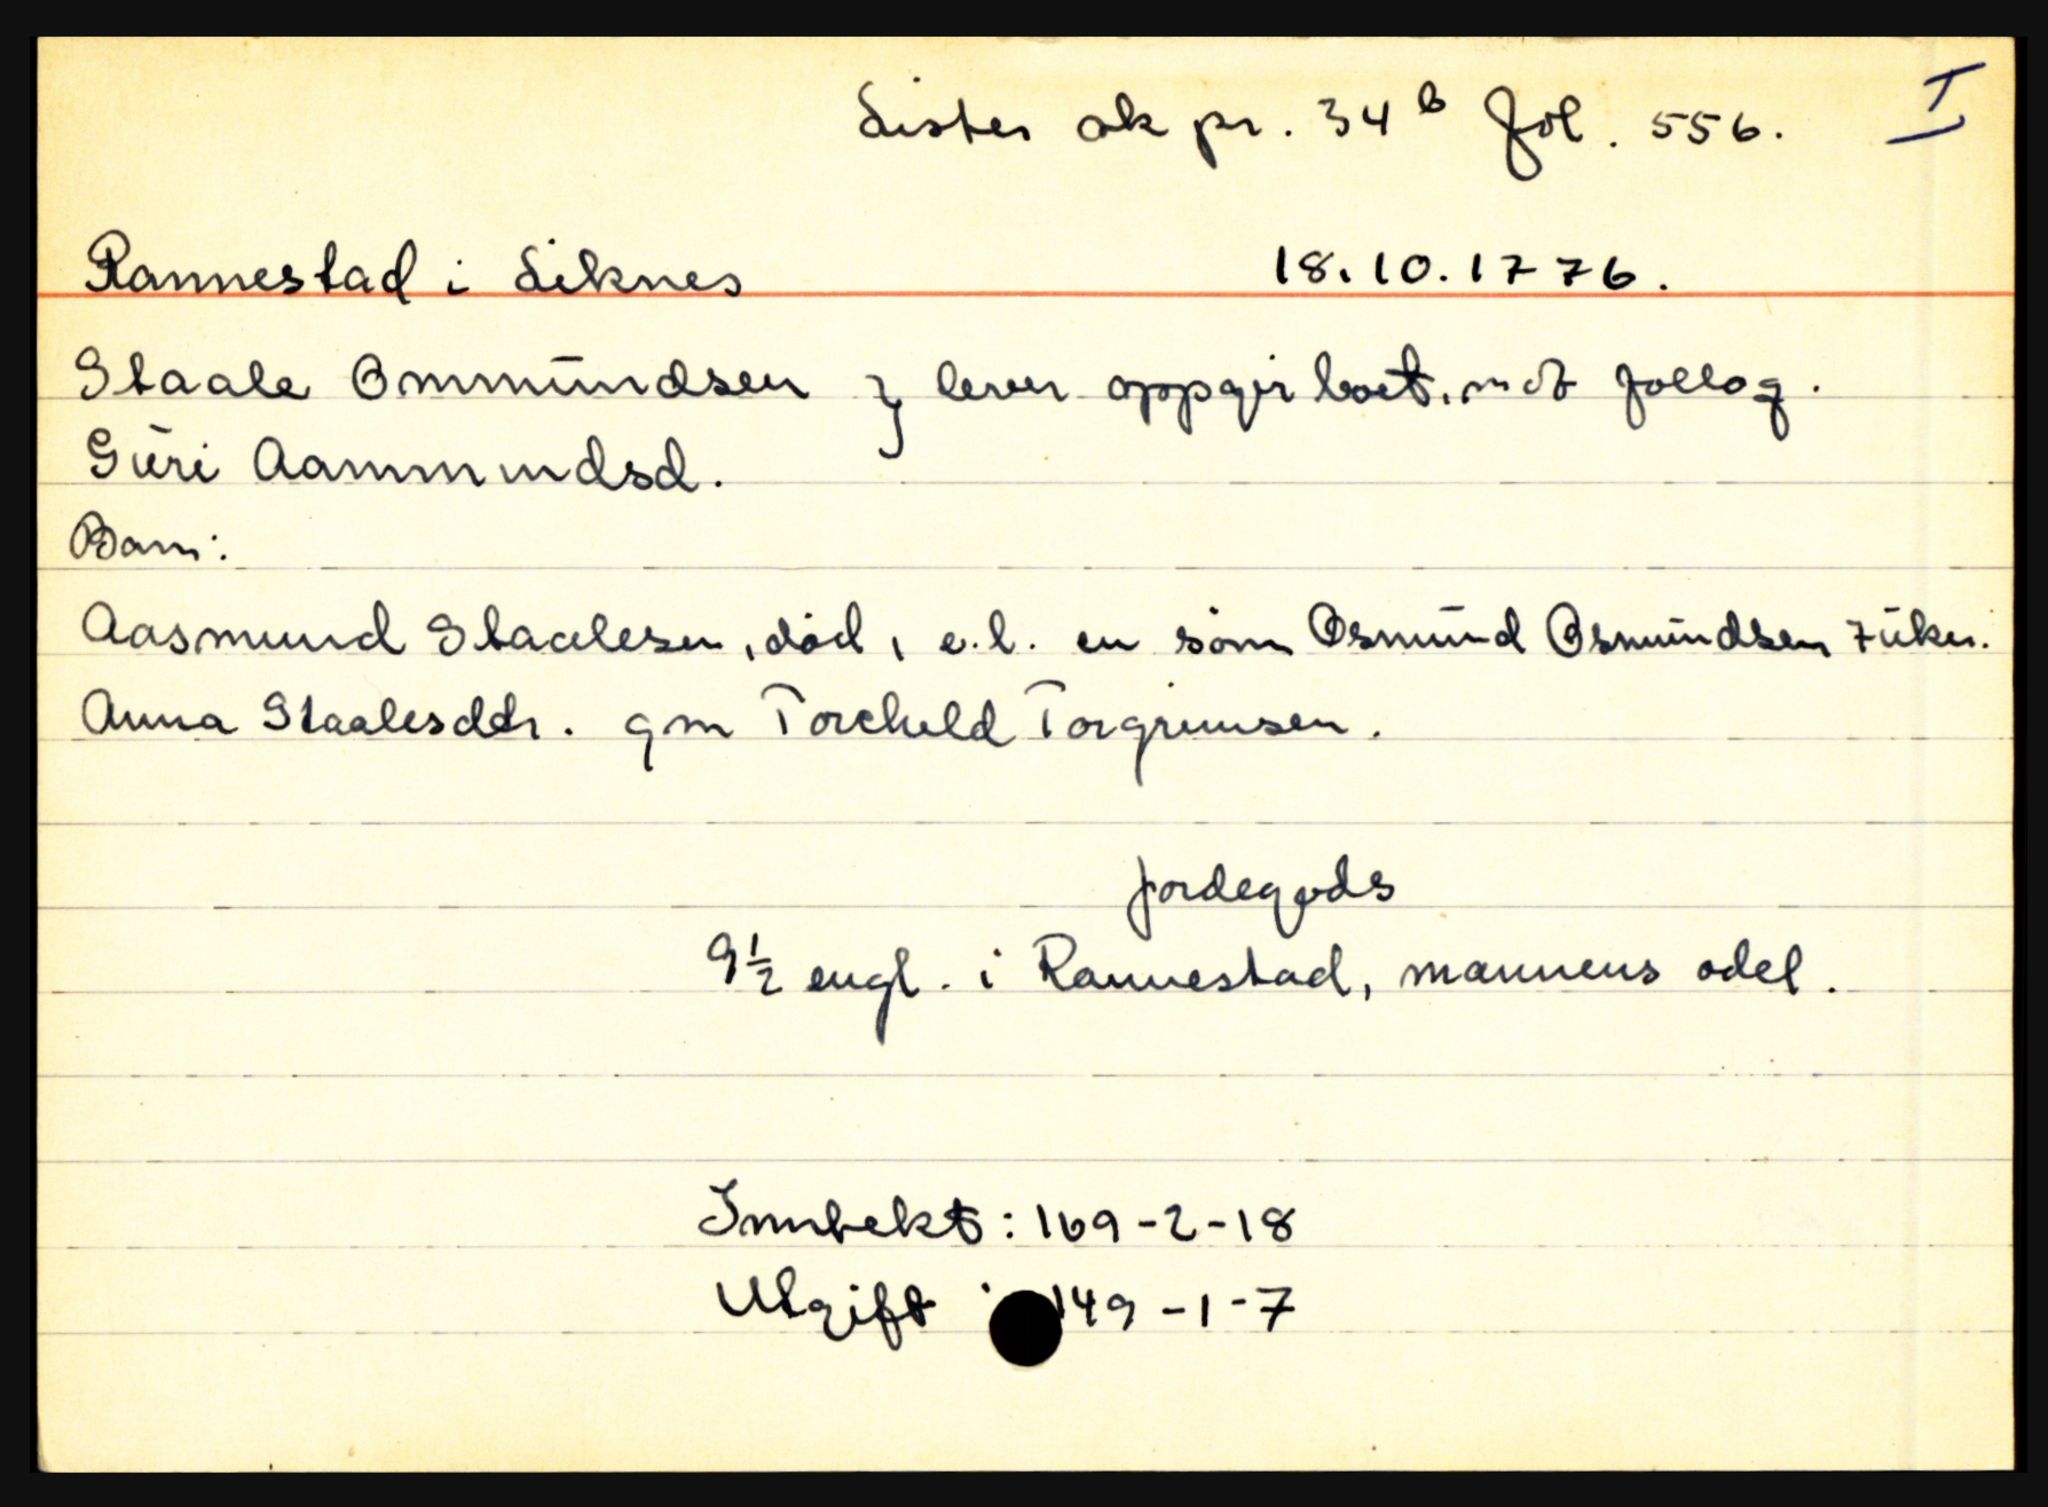 Lister sk pr. 34 b fol. 556. I
Rannestad i Liknes 18.10.1776.
Staale Ommundsen } lever oppgir boet. mot follog.
Guri Aammundsd.
Barn:
Aasmund Staalesen, død, e.l. en sønn Osmund Osmundsen 7 uker.
Anna Staalesdtr. gm Torcheld Torgrimsen.
Jordegods
9½ engl. i Rannestad, mannens odel.
Inntekt: 169-2-18
Utgift : 149-1-7